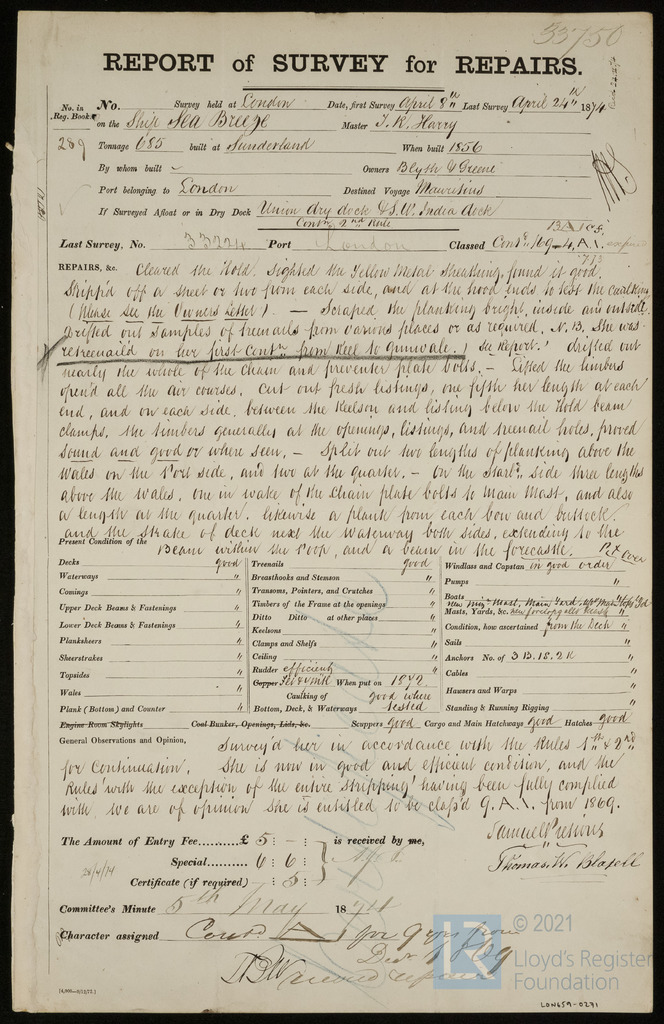 33750
REPORT of SURVEY for REPAIRS.
No. in Reg. Book
No. Survey held at London Date, first Survey April 8th Last Survey April 24th 1874
289 on the Ship Sea Breeze Master J. R. Harry
Tonnage 685 built at Sunderland When built 1856
By whom built Owners Blyth & Greene
Port belonging to London Destined Voyage Mauritius
If Surveyed Afloat or in Dry Dock Union dry dock & S.W. India dock
Contn 2nd Rule
Last Survey, No. 33224 Port London Classed Contd 169-4. A.1.
REPAIRS, &c. Cleared the Hold. Sighted the Yellow Metal Sheathing, found it good,
Shipp'd off a sheet or two from each side, and at the hood ends to test the caulking
(Please See the Owners Letter) — Scraped the planking bright, inside and outside.
Drifted out samples of treenails from various places or as required. N.B. She was
retreenail'd on her first Contn from Keel to Gunwale. See Report. drifted out
nearly the whole of the chain and preventer plate bolts. — Lifted the limbers
open'd all the air courses. Cut out fresh listings, one fifth her length at each
end, and on each side, between the Keelson and listing below the Hold beam
clamps, the timbers generally at the openings, listings, and treenail holes, proved
sound and good or where seen, — Split out two lengths of planking above the
Wales on the Port side, and two at the quarter. — On the Starbd side three lengths
above the wales, one in wake of the Chain plate bolts to Main Mast, and also
a length at the quarter. likewise a plank from each bow and buttock.
and the strake of deck next the Waterway both sides, extending to the
Beam within the Poop, and a beam in the forecastle. Over
Present Condition of the
Decks good
Waterways "
Comings "
Upper Deck Beams & Fastenings "
Lower Deck Beams & Fastenings "
Planksheers "
Sheerstrakes "
Topsides "
Wales "
Plank (Bottom) and Counter "
Treenails good
Breasthooks and Stemson "
Transoms, Pointers, and Crutches "
Timbers of the Frame at the openings "
Ditto Ditto at other places "
Keelsons "
Clamps and Shelfs "
Ceiling "
Rudder efficient
Copper When put on 1872
Caulking of good where
Bottom, Deck, & Waterways tested
Windlass and Capstan in good order
Pumps "
Boats "
Masts, Yards, &c. "
Condition, how ascertained from the Deck "
Sails "
Anchors No. of 3 B. 1 S. 2 K "
Cables "
Hawsers and Warps "
Standing & Running Rigging "
Engine Room Skylights Coal Bunker, Openings, Lids, &c. Scuppers good Cargo and Main Hatchways good Hatches good
General Observations and Opinion, Survey'd her in accordance with the Rules 1st & 2nd
for Continuation. She is now in good and efficient condition, and the
Rules 'with the exception of the entire Stripping' having been fully complied
with, we are of opinion She is entitled to be class'd 9. A.1. from 1869.
The Amount of Entry Fee......£ 5 : - : is received by me,
Special......... 6 : 6 :
Certificate (if required) : 5 :
28/4/74
Thomas W. Blaxell
Committee's Minute 5th May 1874
Character assigned Contd A 1 for 9 years from
© 2021
Lloyd's Register
Foundation
LON659-0271